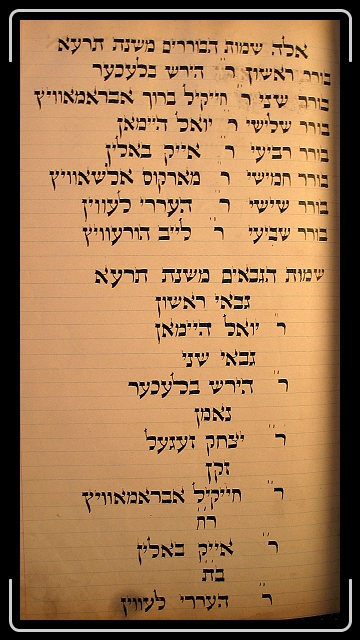 אלה שמות הבוררים משנת תרעא
בורר ראשון ר' הירש בלעכער
בורר שני ר' חייקיל ברוך אבראמאוויץ
בורר שלישי ר' יואל היימאן
בורר רביעי ר' אייק באלין
בורר חמישי ר' מארקוס אלשאוויץ
בורר שישי ר' העררי לעווין
בורר שביעי ר' לייב הורעוויץ
שמות הגבאים משנת תרעא
גבאי ראשון
ר' יואל היימאן
גבאי שני
ר' הירש בלעכער
נאמן
ר' יצחק זעגעל
זקן
ר' חייקיל אבראמאוויץ
רח
ר' אייק באלין
בת
ר' העררי לעווין